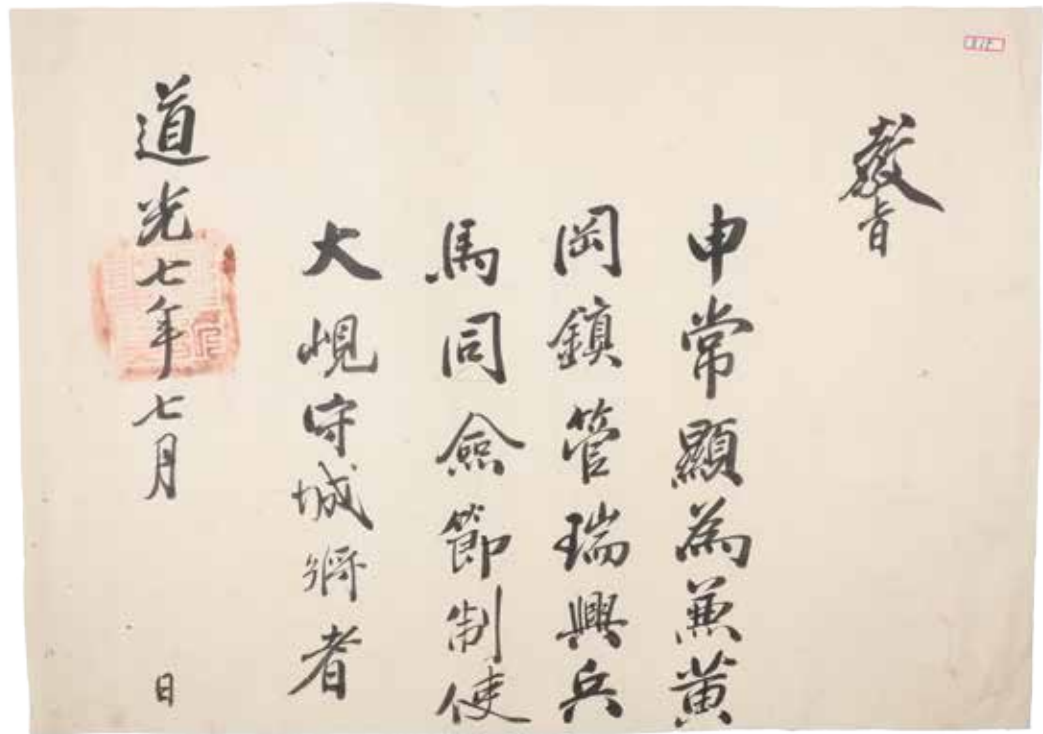 教旨
申常顯為兼黃
岡鎮管瑞興兵
馬同僉節制使
大峴守城將者
道光七年七月 日